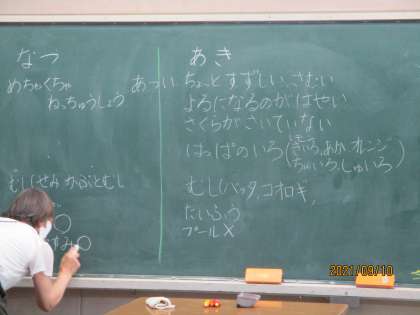 なつ
めちゃくちゃ あつい
ねっちゅうしょう
むし(せみ かぶとむし
◯
すみ◯
あき
ちょっとすずしい、さむい
よるになるのがはやい
さくらがさいていない
はっぱのいろ(きいろ,あか,オレンジ
ちゃいろ,しゅいろ)
むし(バッタ,コオロギ,
たいふう
プール×
2021/09/10